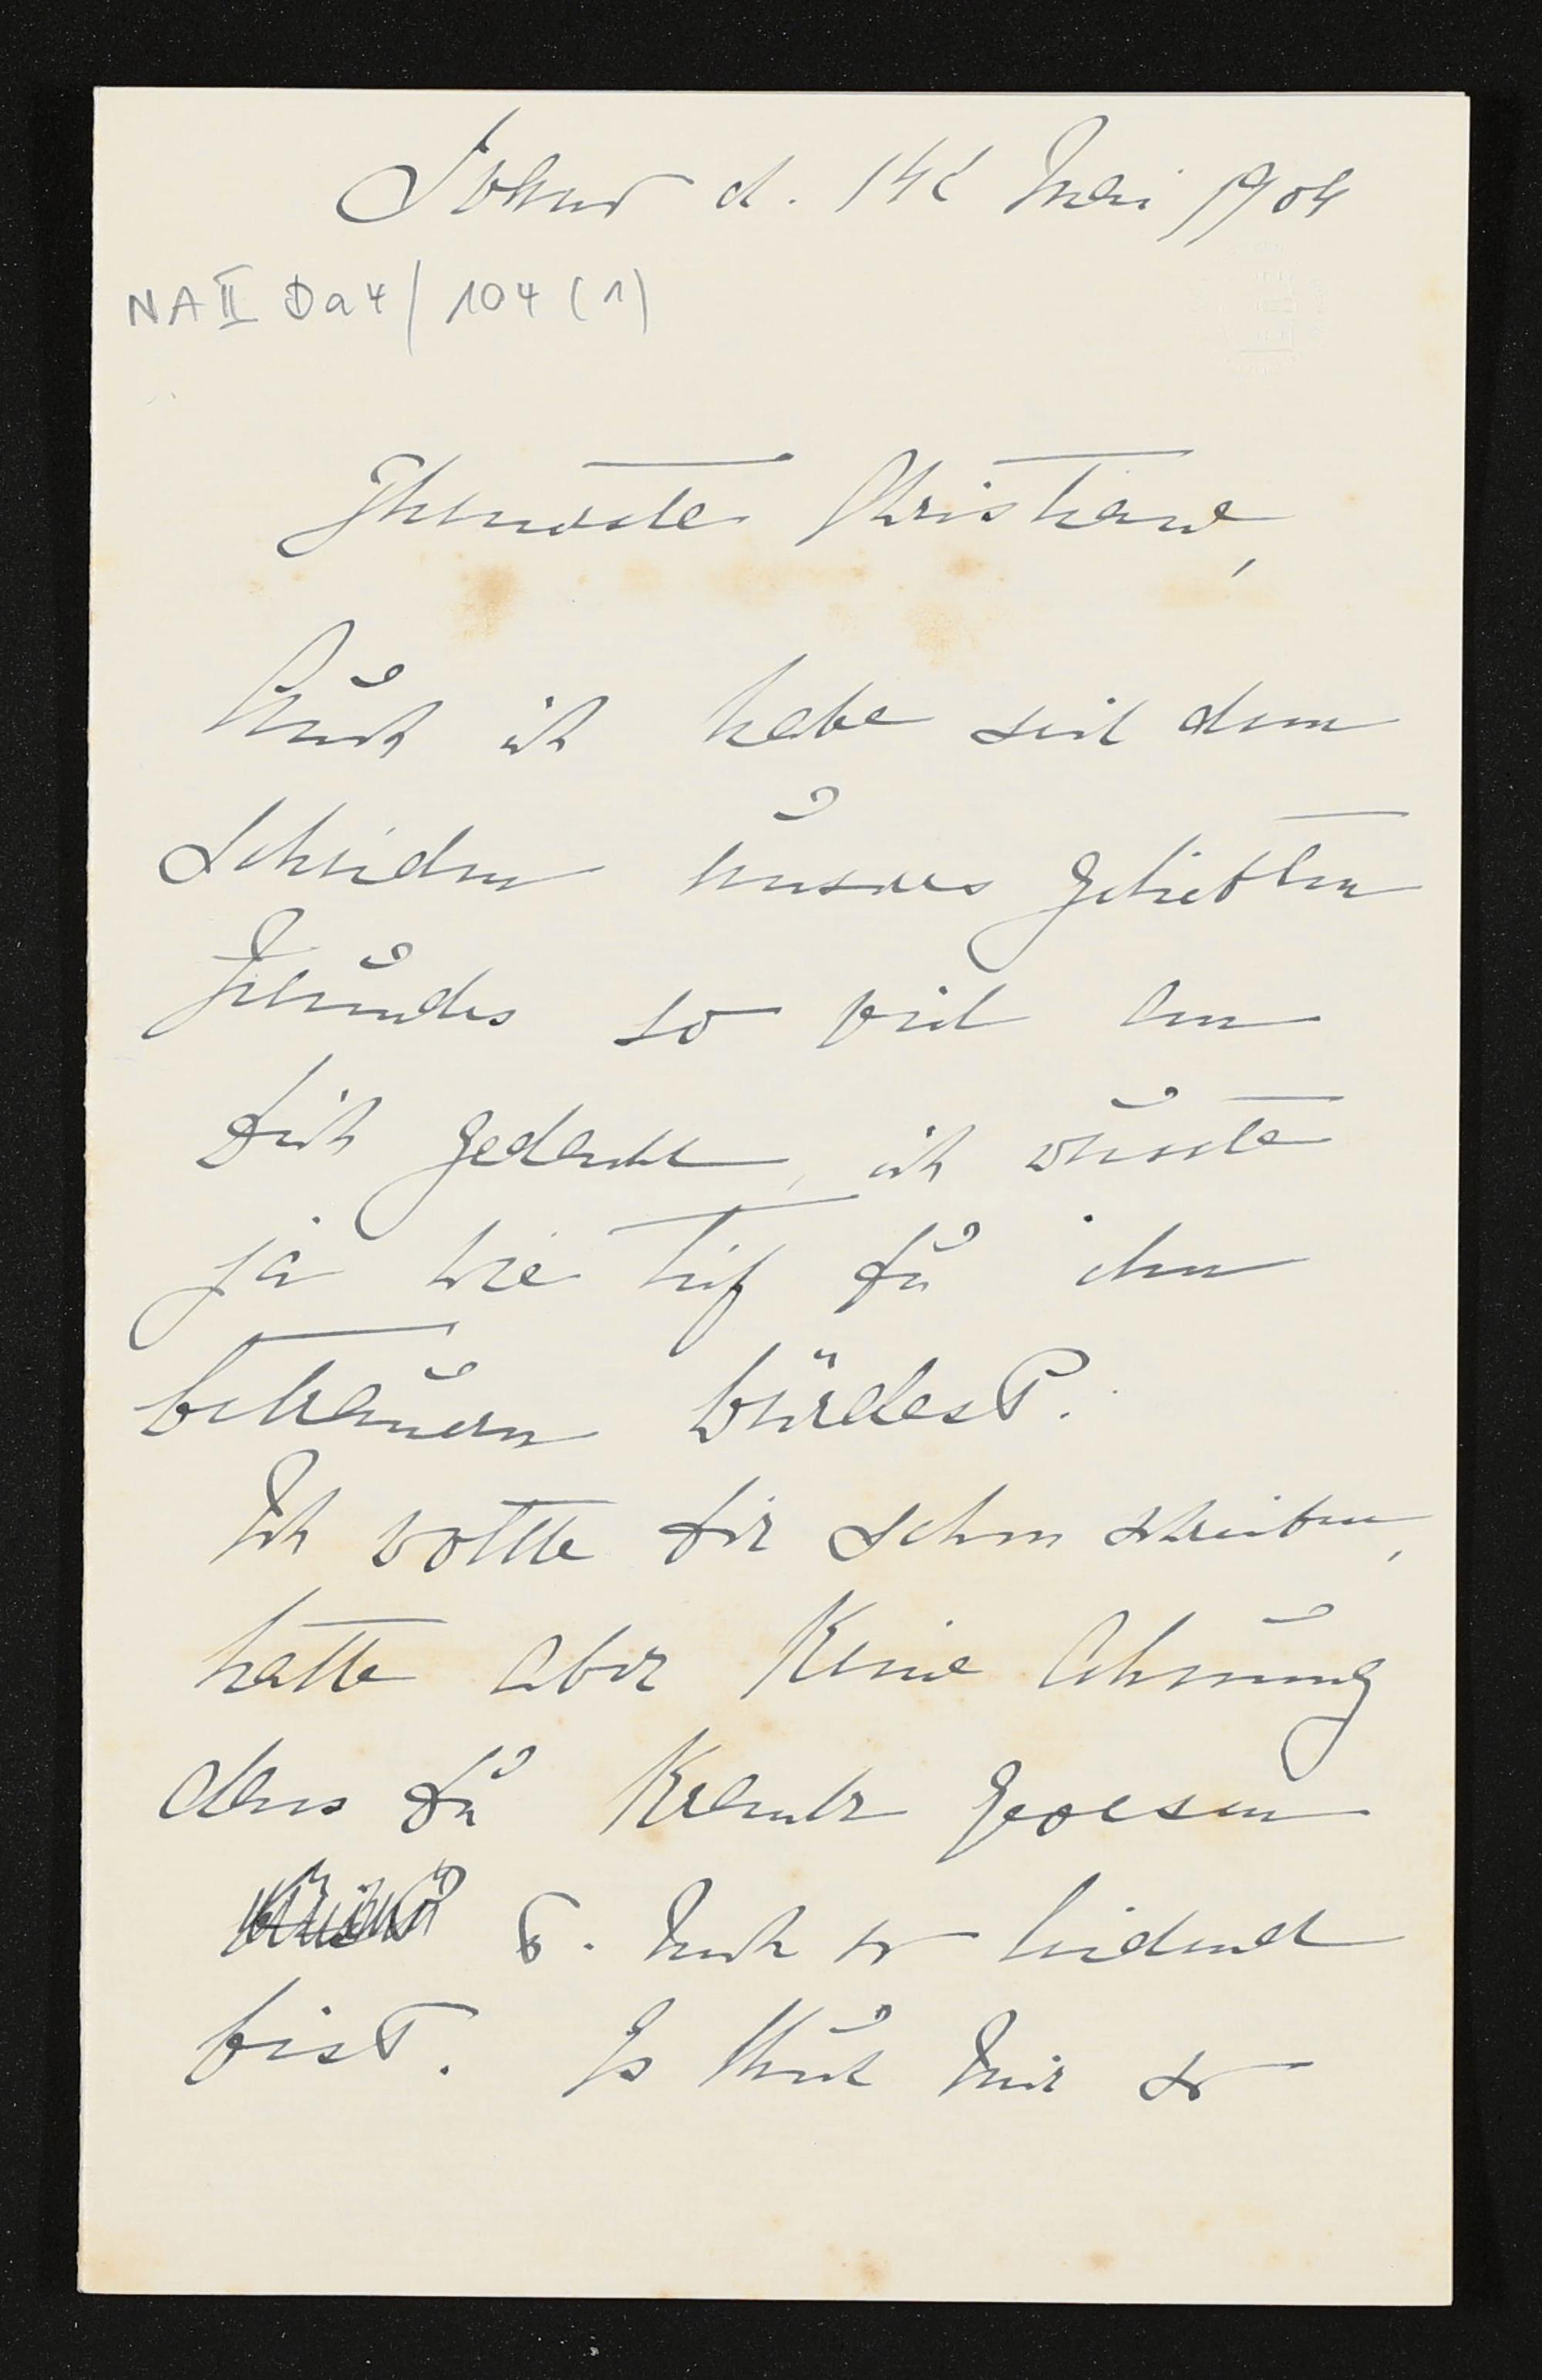 d. 14t Mai 1904
NA II Da 4/ 104 (1)
Theuerste Christiane,
Auch ich habe seit dem
Scheiden unseres geliebten
Freundes so viel an
Dich gedacht, ich wusste
ja wie tief Du ihn
betrauern würdest.
Ich wollte Dir schon schreiben,
hatte aber keine Ahnung
dass Du krank gewesen
u. noch so leidend
bist. Es thut mir so